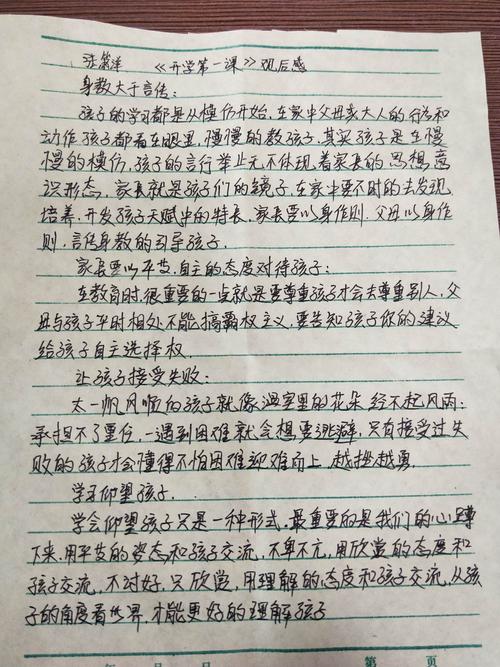 张 洋 《开学第一课》观后感
身教大于言传:
孩子的学习都是从模仿开始,在家中父母亲大人的行为和
动作孩子都看在眼里,慢慢的教孩子,其实孩子是在慢
慢的模仿,孩子的言行举止无不体现着家长的思想,意
识形态,家长就是孩子们的镜子,在家中要不时的去发现,
培养,开发孩子天赋中的特长,家长要以身作则,父母以身作
则,言传身教的引导孩子。
家长要以平等,自主的态度对待孩子:
在教育时,很重要的一点就是要尊重孩子才会去尊重别人,父
母与孩子平时相处不能搞霸权主义,要告知孩子你的建议
给孩子自主选择权。
让孩子接受失败:
太一帆风顺的孩子就像温室里的花朵经不起风雨;
承担不了重任,一遇到困难就会想要逃避,只有接受过失
败的孩子才会懂得不怕困难迎难而上,越挫越勇。
学习仰望孩子.
学会仰望孩子只是一种形式,最重要的是我们的心蹲
下来,用平等的姿态和孩子交流,不卑不亢,用欣赏的态度和
孩子交流,不讨好,只欣赏,用理解的态度和孩子交流,从孩
子的角度看世界,才能更好的理解孩子
年 月 日 第 页